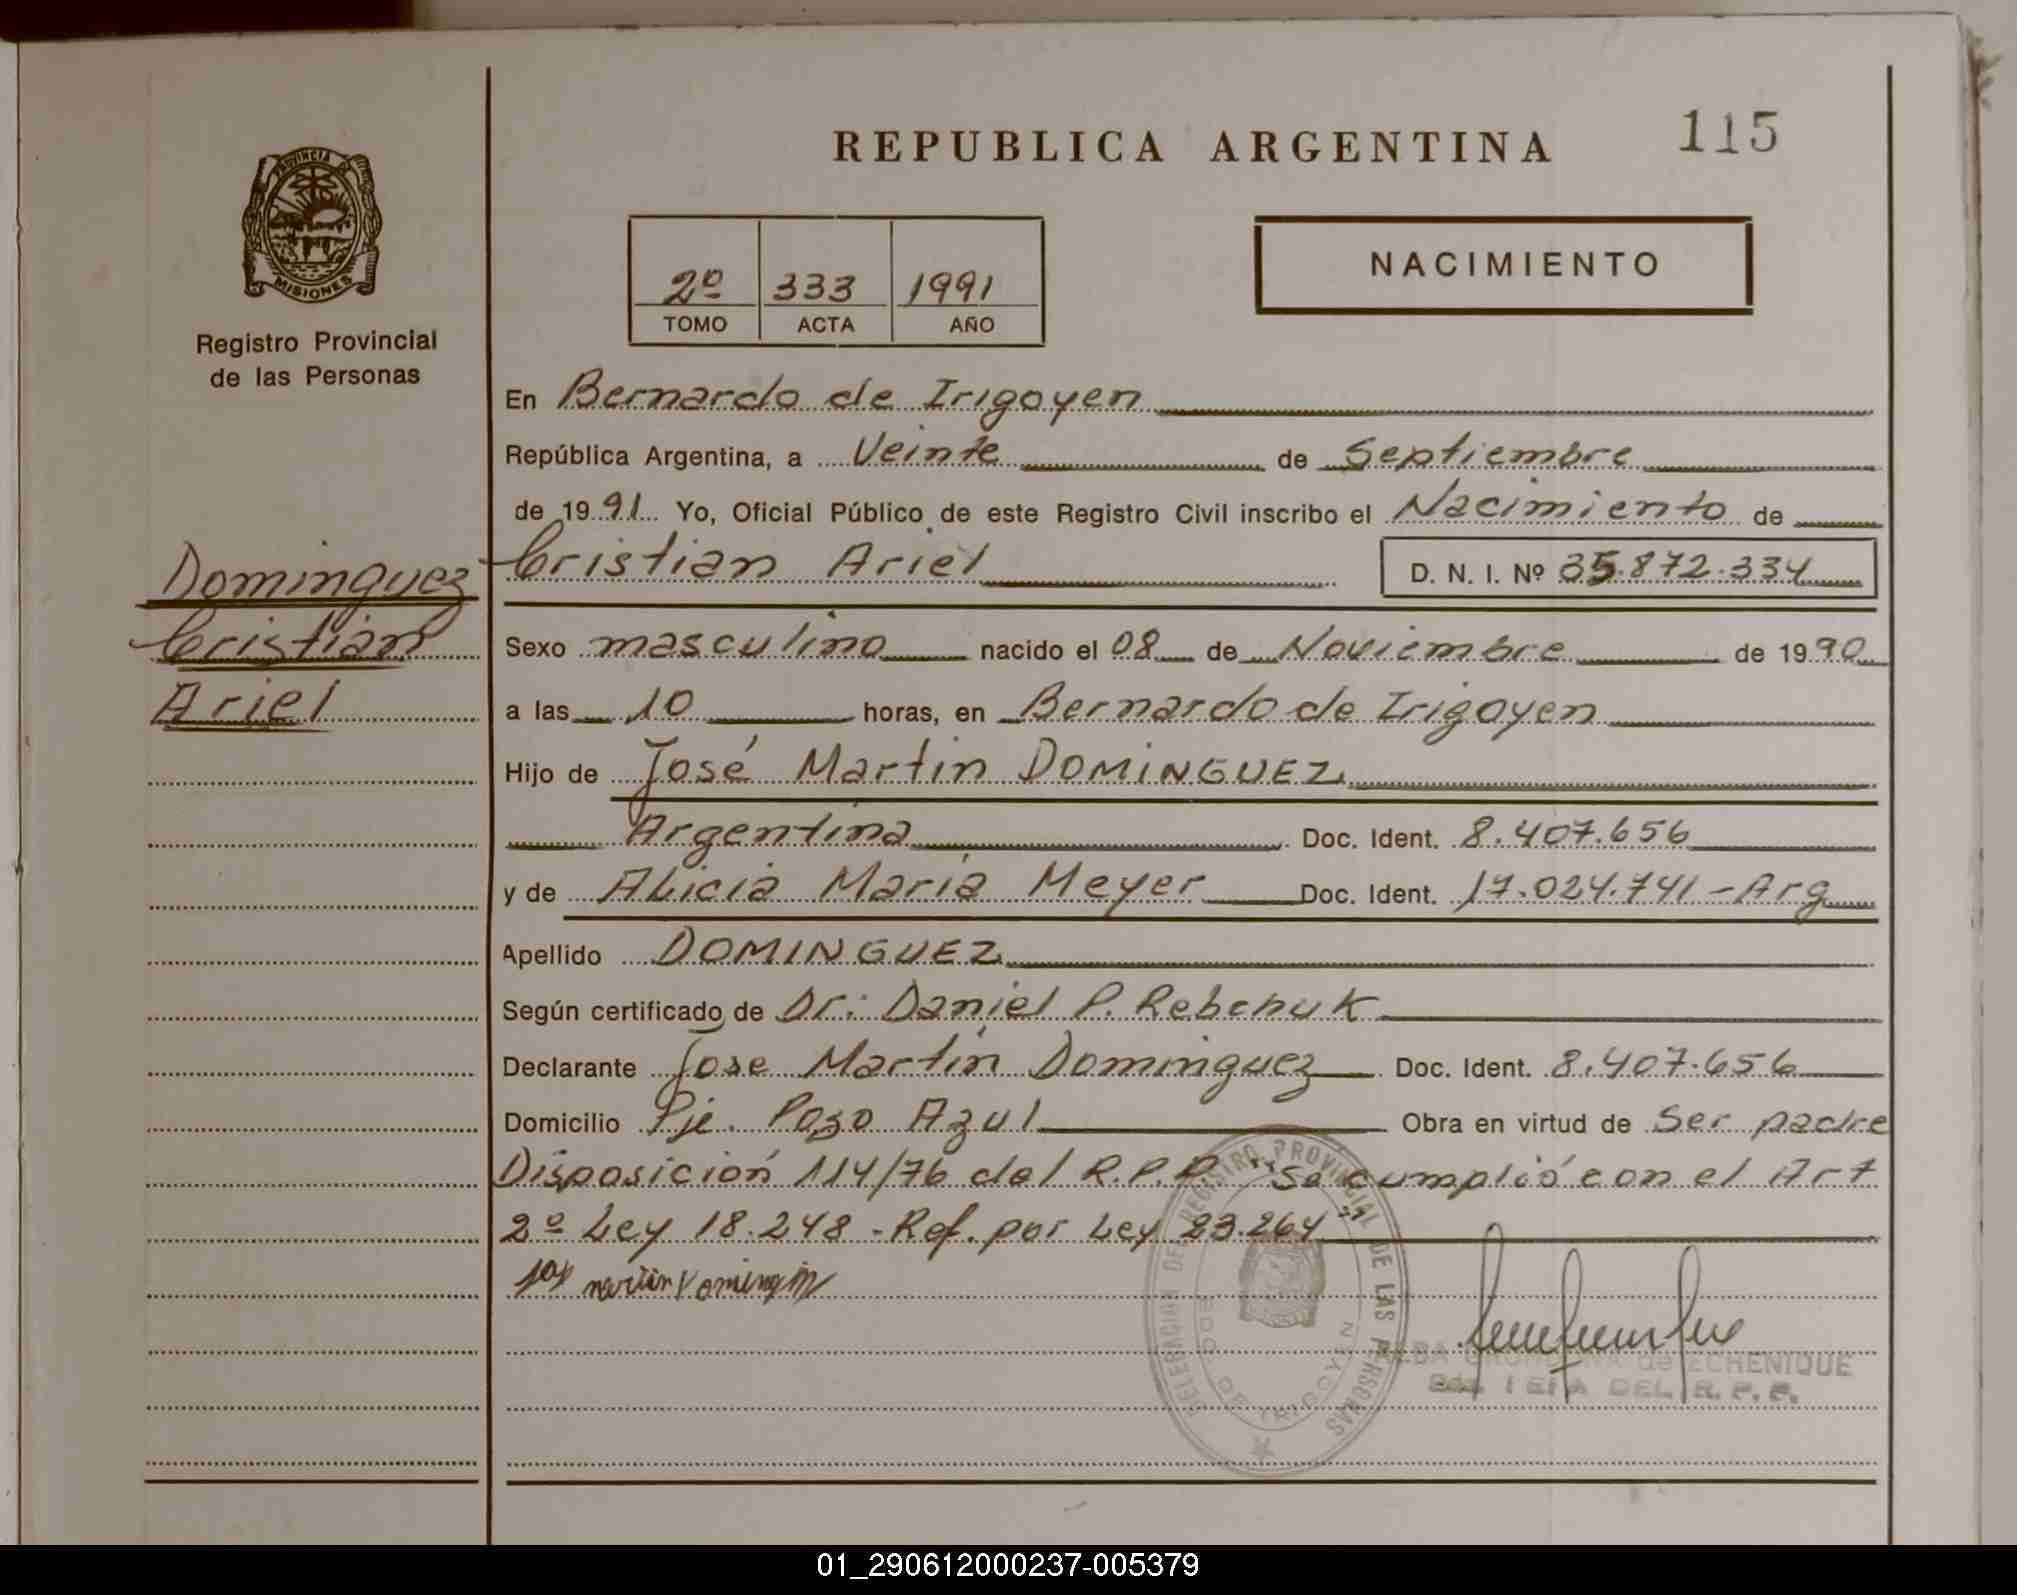 REPUBLICA ARGENTINA
115
PROVINCIA
MISIONES
Registro Provincial
de las Personas
2º 333 1991
TOMO ACTA AÑO
NACIMIENTO
En Bernardo de Irigoyen
República Argentina, a Veinte de Septiembre
de 1991 Yo, Oficial Público de este Registro Civil inscribo el Nacimiento de
Cristian Ariel D. N. I. Nº 35.872.334
Dominguez
Cristian
Ariel
Sexo masculino nacido el 08 de Noviembre de 1990
a las 10 horas, en Bernardo de Irigoyen
Hijo de José Martin DOMINGUEZ
Argentina Doc. Ident. 8.407.656
y de Alicia Maria Meyer Doc. Ident. 17.024.741 - Arg
Apellido DOMINGUEZ
Según certificado de Dr: Daniel P. Rebchuk
Declarante Jose Martin Dominguez Doc. Ident. 8.407.656
Domicilio Pje. Pozo Azul Obra en virtud de Ser padre
Disposición 114/76 del R.P.P. "Se cumplió con el Art
2º Ley 18.248 - Ref. por Ley 23.264"
DELEGACION DEL REGISTRO PROVINCIAL DE LAS PERSONAS
BDO. DE IRIGOYEN
de ECHENIQUE
DEL R. P. P.
01_290612000237-005379